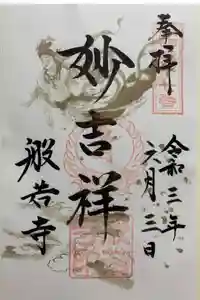 奉拝
令和三年
六月三日
妙吉祥
般若寺